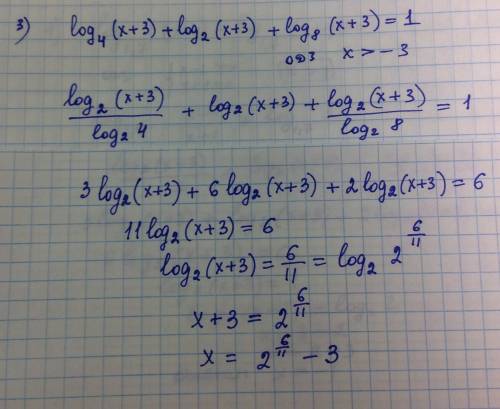 3) log₄(x+3) + log₂(x+3) + log₈(x+3) = 1
ОДЗ x > -3
log₂(x+3)/log₂4 + log₂(x+3) + log₂(x+3)/log₂8 = 1
3log₂(x+3) + 6log₂(x+3) + 2log₂(x+3) = 6
11log₂(x+3) = 6
log₂(x+3) = 6/11 = log₂ 2^(6/11)
x+3 = 2^(6/11)
x = 2^(6/11) - 3